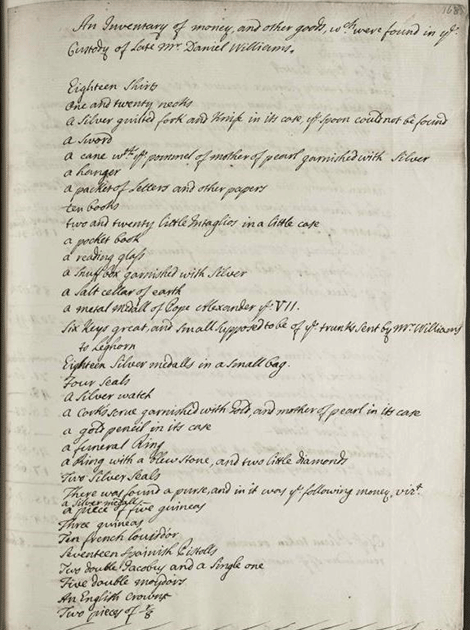 An Inventory of money, and other goods, wch were found in ye
Custody of Late Mr. Daniel Williams.
Eighteen Shirts
one and twenty necks
a Silver guilted fork and Knife in its case, ye spoon could not be found
a Sword
a cane wth ye pommel of mother of pearl garnished with Silver
a hanger
a packet of Letters and other papers
ten books
two and twenty Little Intaglios in a little case
a pocket book
a reading glass
a Snuf box garnished with Silver
a Salt cellar of earth
a metal medall of Pope Alexander ye VII.
Six Keys great, and small Supposed to be of ye trunks sent by Mr. Williams
to Leghorn
Eighteen Silver medalls in a small bag.
Four Seals
A Silver watch
a Corkscrue garnished with Gold, and mother of pearl in its case
a gold pencil in its case
a funeral Ring
a Ring with a Blew Stone, and two little diamonds
Two Silver Seals
There was found a purse, and in it was ye following money, vizt.
a Silver medall
a piece of five guineas
Three guineas
Ten french Louisd'or
Seventeen Spanish Pistolls
Two double Jacobus and a Single one
Five double moidors
An English Crown
Two pieces of 7/8